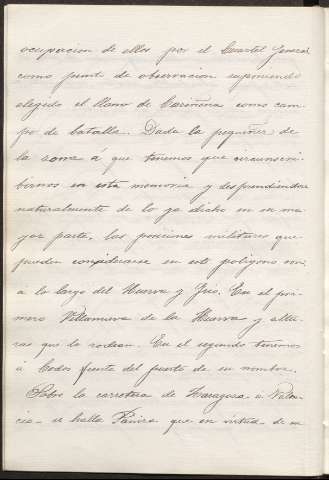 ocupacion de ellos por el Cuartel General
como punto de observacion suponiendo
elegido el llano de Cariñena como cam-
po de batalla. Dada la pequeñez de
la zona á que tenemos que circunscri-
birnos en esta memoria y desprendiendose
naturalmente de lo ya dicho en su ma-
yor parte, las posiciones militares que
pueden considerarse en este poligono son
a lo largo del Huerva y Jius. En el pri-
mero Villanueva de la Huerva y altu-
ras que la rodean. En el segundo tenemos
á Codos frente del puerto de su nombre.
Sobre la carretera de Zaragoza á Valen-
cia se halla Paniza que en virtud de su